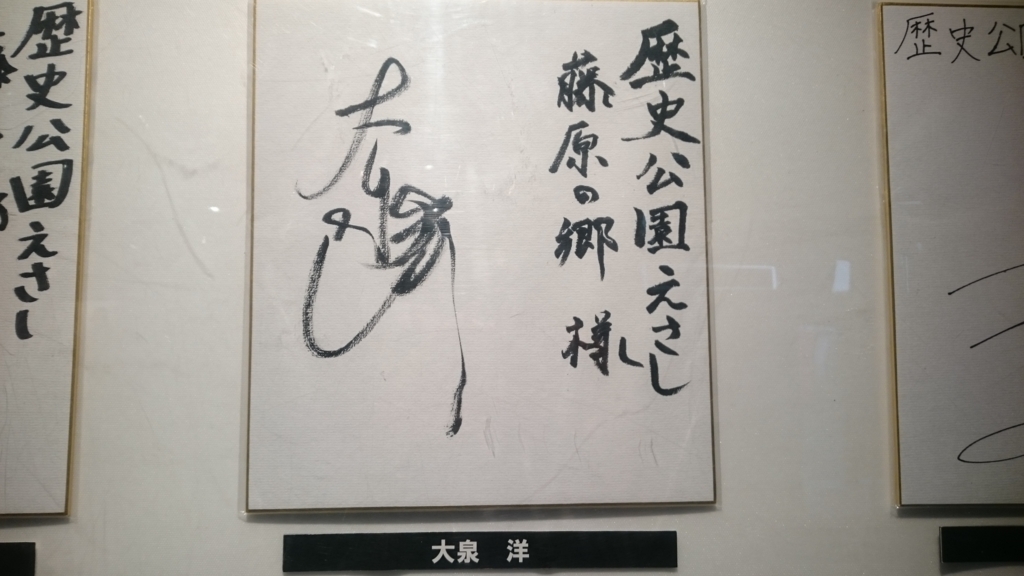 歴史公園えさし
藤原の郷 様
大泉 洋
歴史公園えさし
歴史公